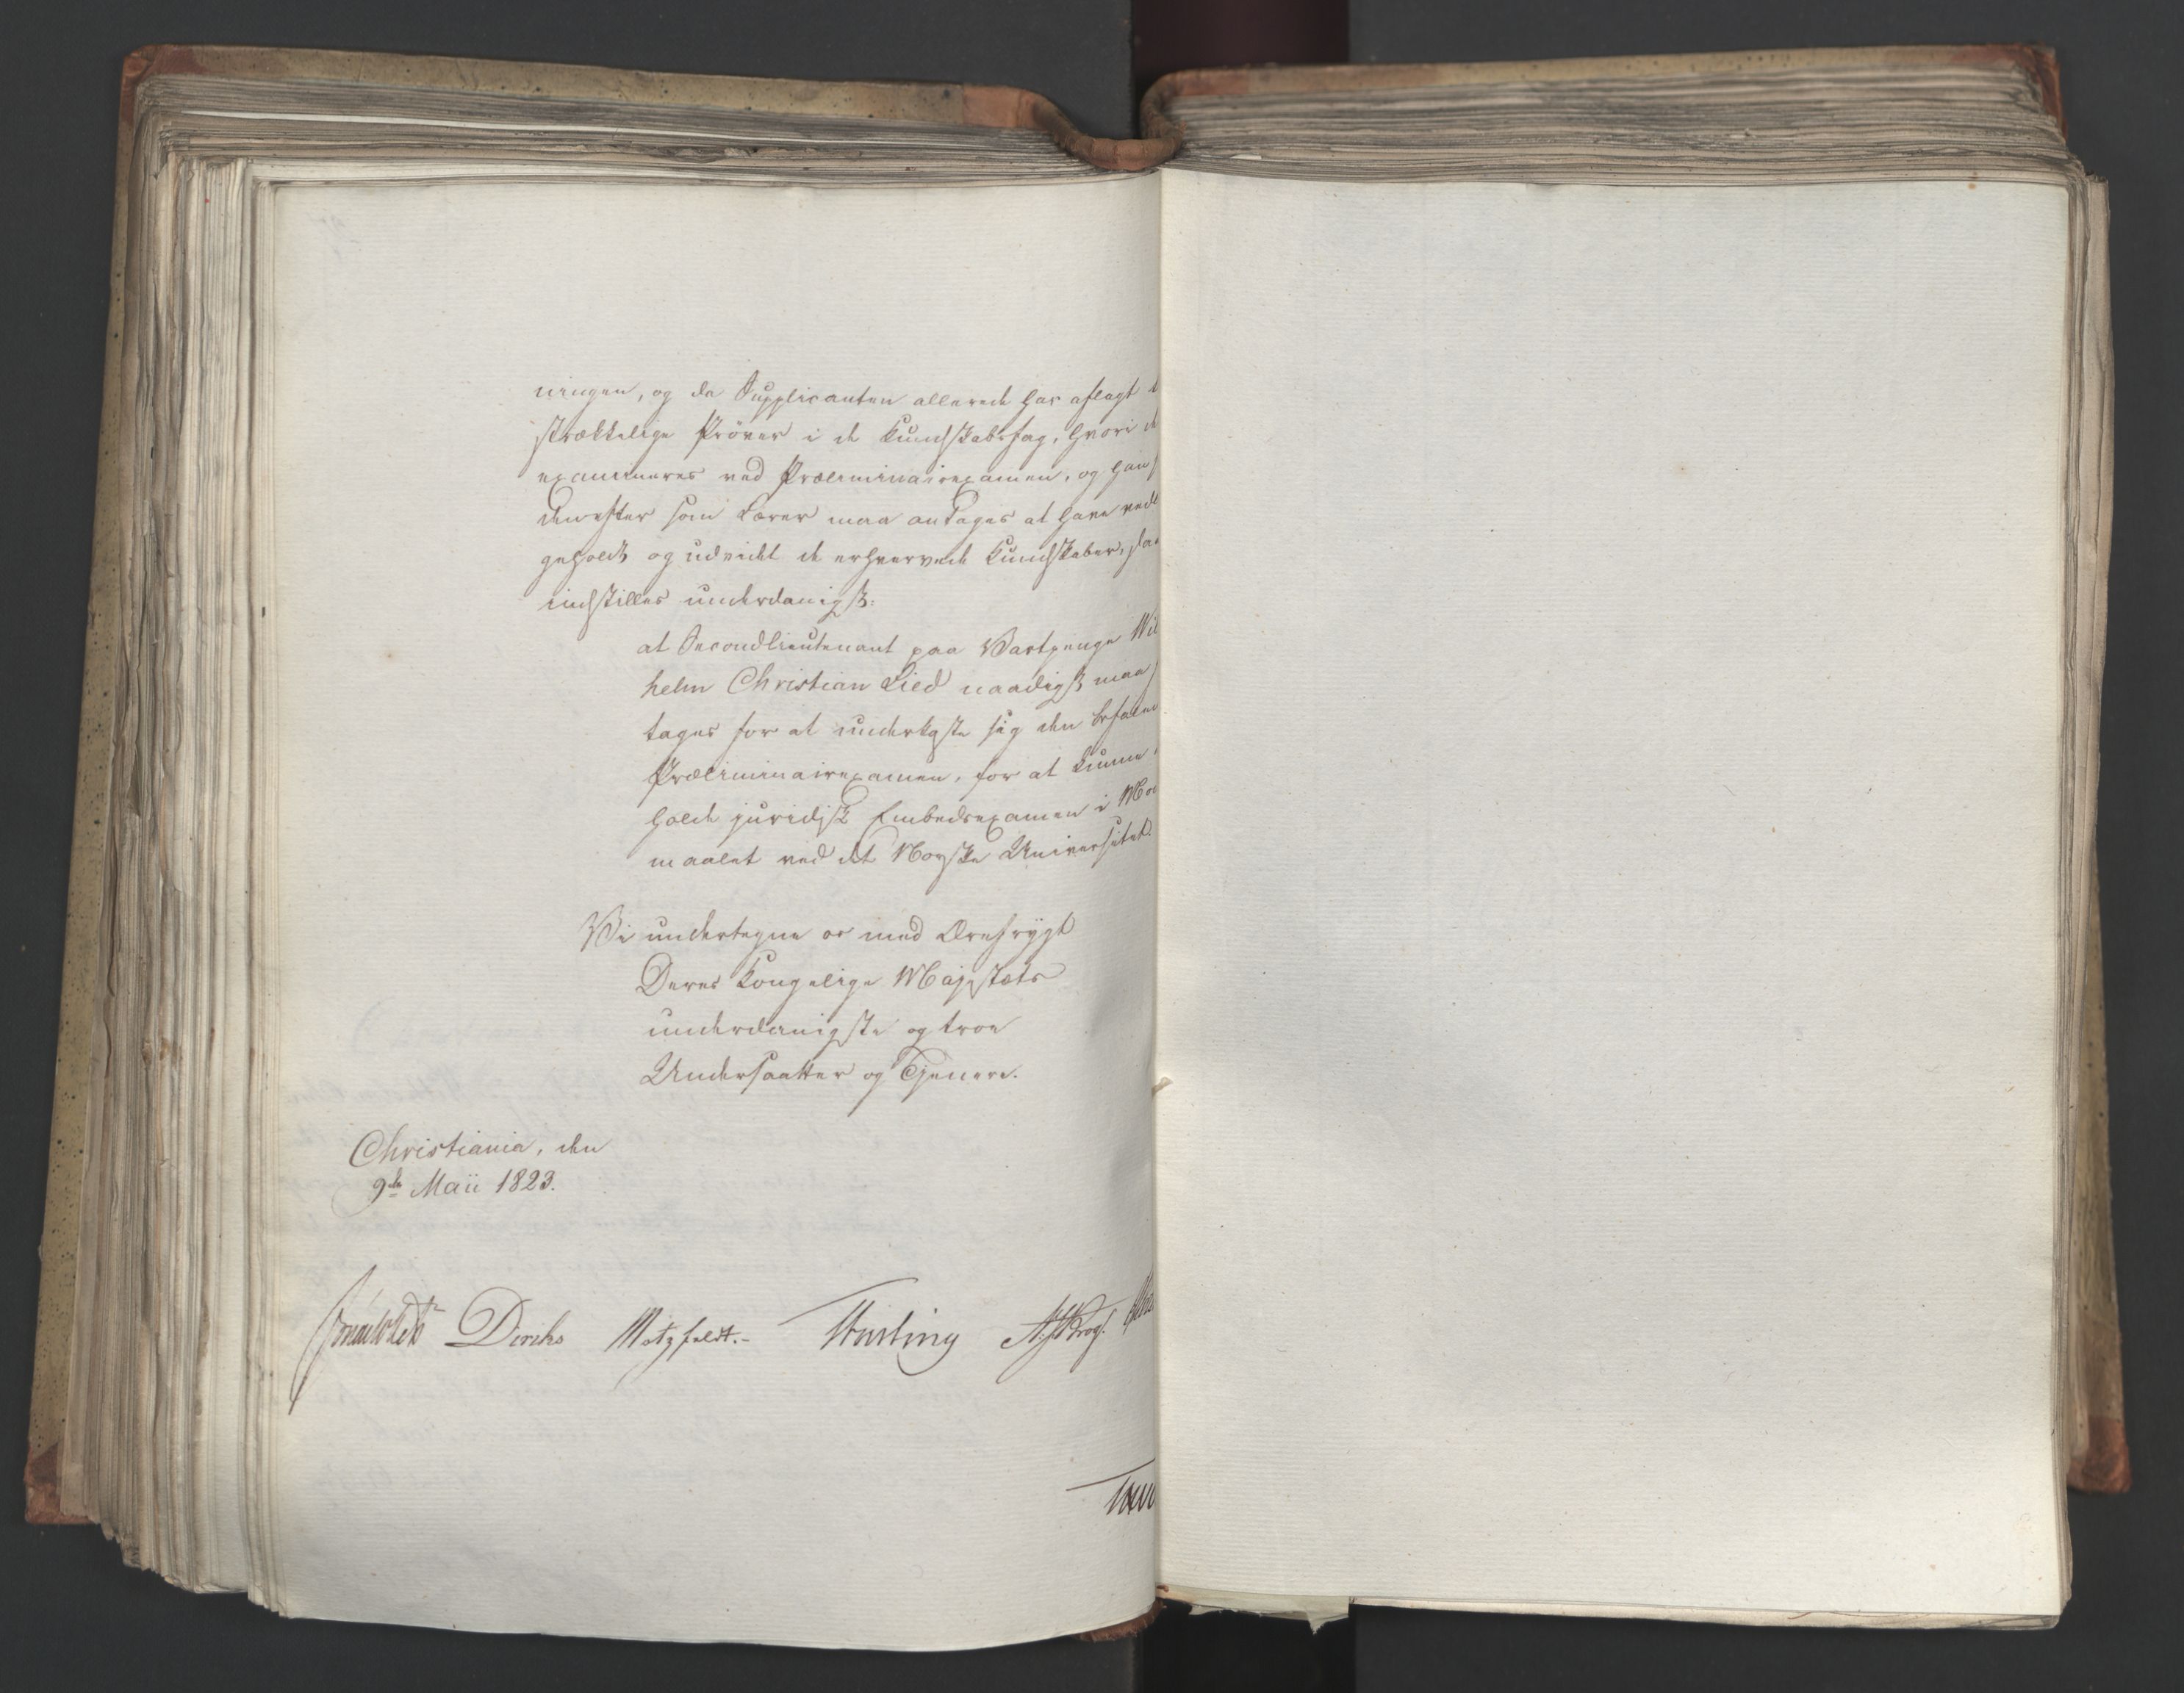 ningen, og da Supplicanten allerede har aflagt
strækkelige Prøver i de Kundskabsfag, hvori de
examineres ved Præliminairexamen, og han
derefter som Lærer maa antages at have vedl
geholdt og udvidet de erhvervede Kundskaber, saa
indstilles underdanigst:
at Secondlieutenant paa Vartpenge Wil
helm Christian Lied naadigst maa
tages for at underkaste sig den befalede
Præliminairexamen, for at kunne
holde juridisk Embedsexamen i Mo
maalet ved det Norske Universitet.
Vi undertegne os med Ærefrygt
Deres Kongelige Majestæts
underdanigste og troe
Undersaatter og Tjenere.
Christiania, den
9de Maii 1823.
Diriks Motzfeldt. A. Krog.